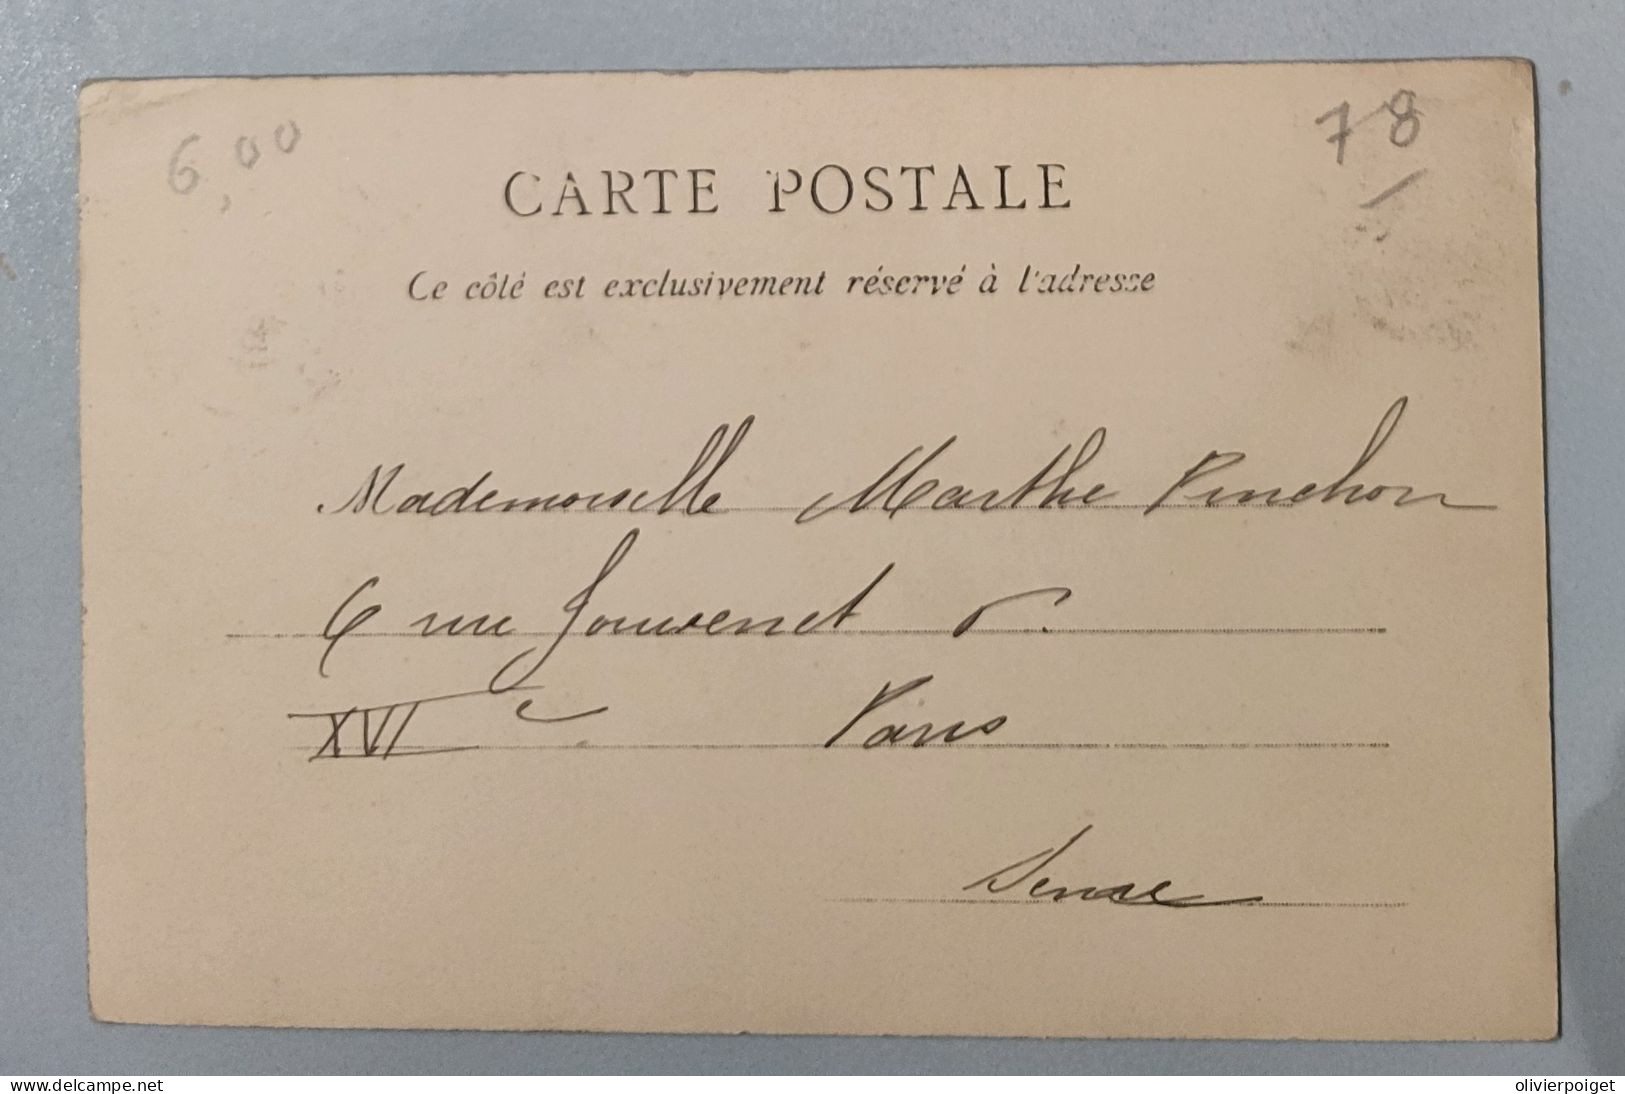 6,00
78
CARTE POSTALE
Ce côté est exclusivement réservé à l'adresse
Mademoiselle Marthe Pinchon
6 rue Jouvenet 6.
XVI e Paris
Seine
olivierpoiget